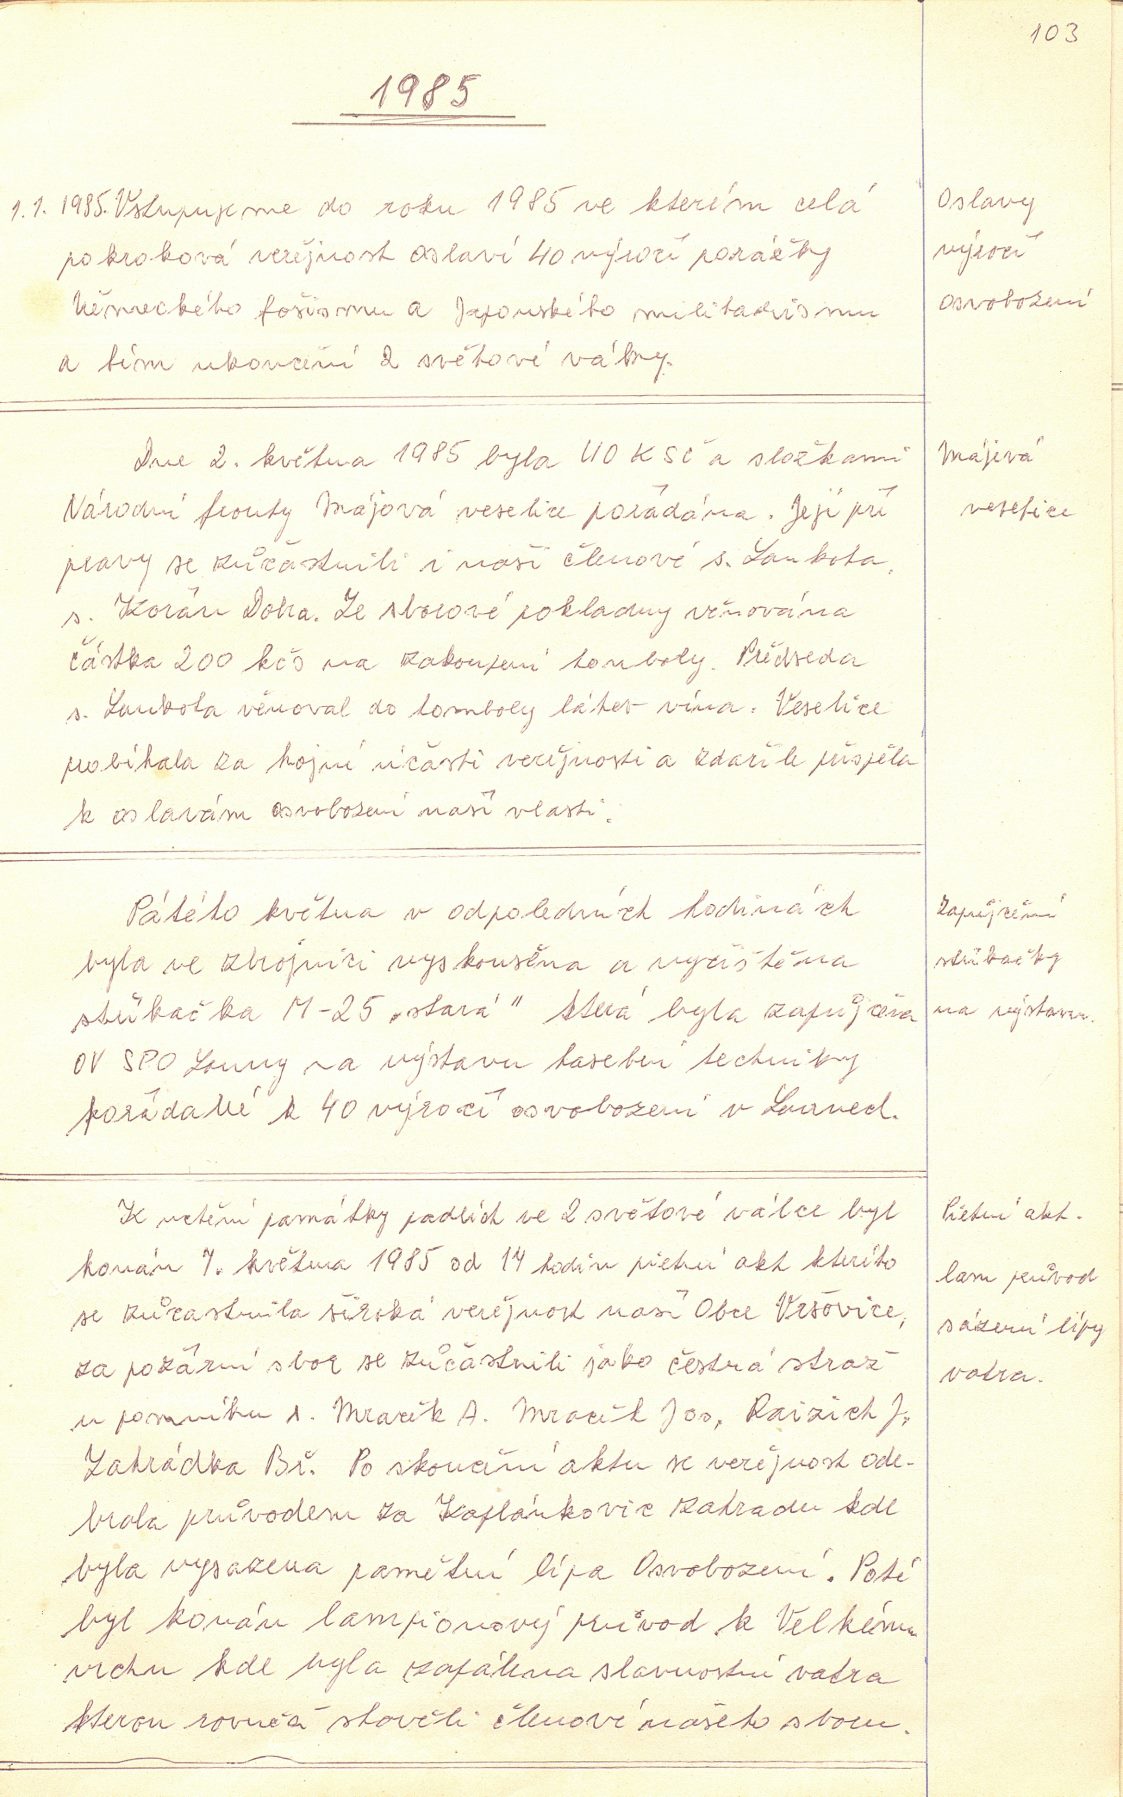 103
1985
1.1. 1985. Vstupujeme do roku 1985 ve kterém celá
pokroková veřejnost oslaví 40 výročí porážky
Německého fašismu a Japonského militarismu
a tím ukončení 2 světové války.
Oslavy
výročí
osvobození
Dne 2. května 1985 byla UO KSČ a složkami
Národní fronty Májová veselice pořádána. Její pří
pravy se zůčastnili i naši členové s. Loukota,
s. Kořán Dobra. Ze sborové pokladny věnována
částka 200 kčs na zakoupení tomboly. Předseda
s. Loukota věnoval do tomboly láhev vína. Veselice
probíhala za hojní účasti veřejnosti a zdařile přispěla
k oslavám osvobození naší vlasti.
Májová
veselice
Pátého května v odpoledních hodinách
byla ve zbrojnici vyskoušena a vyčištěna
stříkačka M-25 „stará" která byla zapůjčena
OV SPO Louny na výstavu hasební techniky
pořádané k 40 výročí osvobození v Lounech.
Zapůjčení
stříkačky
na výstavu.
K uctění památky padlích ve 2 světové válce byl
konán 7. května 1985 od 14 hodin pietní akt kterého
se zůčastnila široká veřejnost naší Obce Vršovice,
za požární sbor se zůčástnili jako čestná stráž
u pomníku s. Mracík A. Mracík Jos, Raizich J,
Zahrádka Bř. Po skončení aktu se veřejnost ode-
brala průvodem za Kaplánkovic zahradu kde
byla vysazena pamětní lípa Osvobození. Poté
byl konán lampionový průvod k Velkému
vrchu kde byla zapálena slavnostní vatra
kterou rovněž stavěli členové našeho sboru.
Pietní akt.
lam průvod
sázení lípy
vatra.